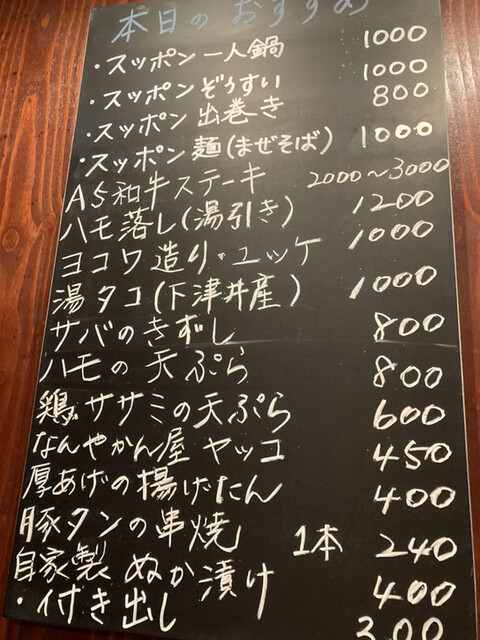 本日のおすすめ
・スッポン一人鍋 1000
・スッポンぞうすい 1000
・スッポン出巻き 800
・スッポン麺(まぜそば) 1000
A5和牛ステーキ 2000〜3000
ハモ落し(湯引き) 1200
ヨコワ造り・ユッケ 1000
湯タコ(下津井産) 1000
サバのきずし 800
ハモの天ぷら 800
鶏ササミの天ぷら 600
なんやかん屋ヤッコ 450
厚あげの揚げたん 400
豚タンの串焼 1本 240
自家製ぬか漬け 400
・付き出し 300